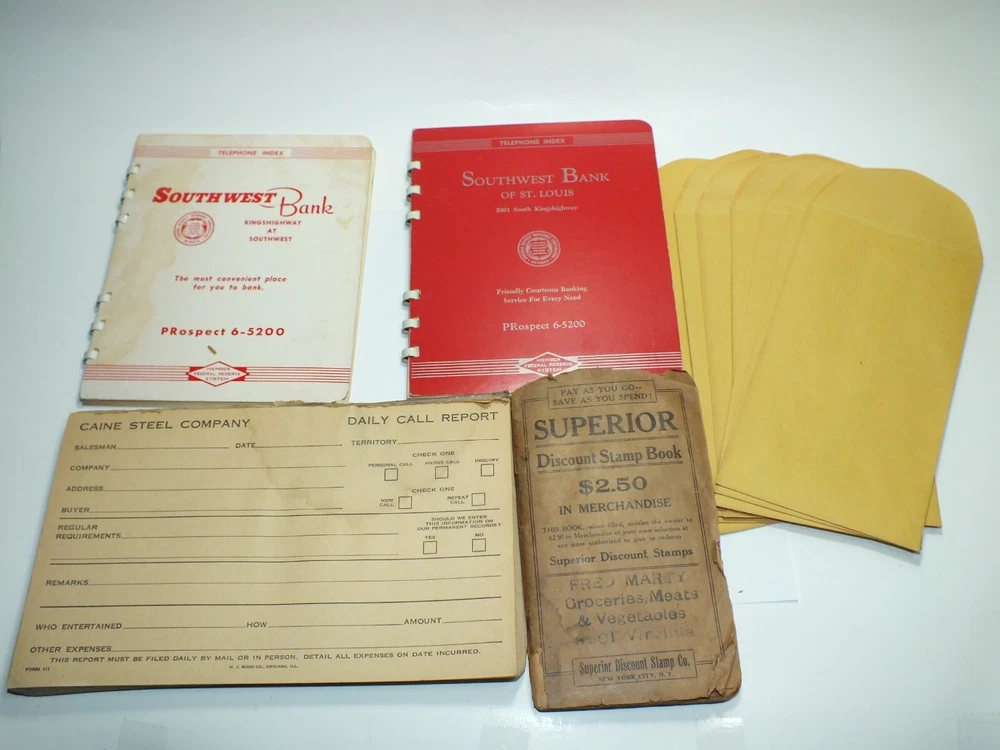 TELEPHONE INDEX
SOUTHWEST Bank
KINGSHIGHWAY
AT
SOUTHWEST
The most convenient place
for you to bank.
PRospect 6-5200
MEMBER
FEDERAL RESERVE
SYSTEM
TELEPHONE INDEX
SOUTHWEST BANK
OF ST. LOUIS
2301 South Kingshighway
Friendly Courteous Banking
Service For Every Need
PRospect 6-5200
MEMBER
FEDERAL RESERVE
SYSTEM
CAINE STEEL COMPANY DAILY CALL REPORT
SALESMAN DATE TERRITORY
CHECK ONE
COMPANY PERSONAL CALL PHONE CALL INQUIRY
ADDRESS CHECK ONE
BUYER NEW CALL REPEAT CALL
REGULAR
REQUIREMENTS
SHOULD WE ENTER
THIS INFORMATION ON
OUR PERMANENT RECORDS?
YES NO
REMARKS
WHO ENTERTAINED HOW AMOUNT
OTHER EXPENSES
THIS REPORT MUST BE FILED DAILY BY MAIL OR IN PERSON. DETAIL ALL EXPENSES ON DATE INCURRED.
FORM
PAY AS YOU GO--
SAVE AS YOU SPEND!
SUPERIOR
Discount Stamp Book
$2.50
IN MERCHANDISE
THIS BOOK, when filled, entitles the owner to
$2.50 in Merchandise of your own selection at
any store authorized to give or redeem
Superior Discount Stamps
FRED MARTY
Groceries, Meats
& Vegetables
Virginia
Superior Discount Stamp Co.
NEW YORK CITY, N. Y.